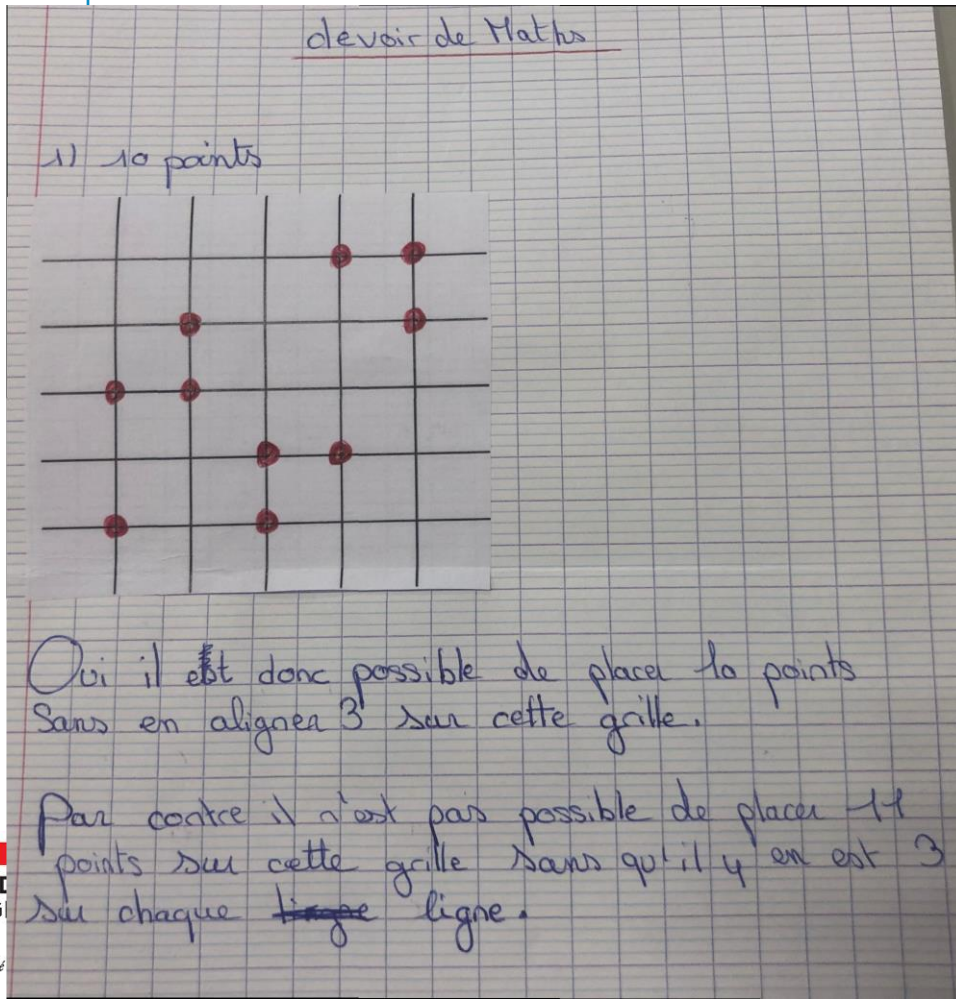 devoir de Maths
1) 10 points
Oui il est donc possible de placer 10 points
Sans en aligner 3 sur cette grille.
Par contre il n'est pas possible de placer 11
points sur cette grille sans qu'il y en est 3
sur chaque ligne.